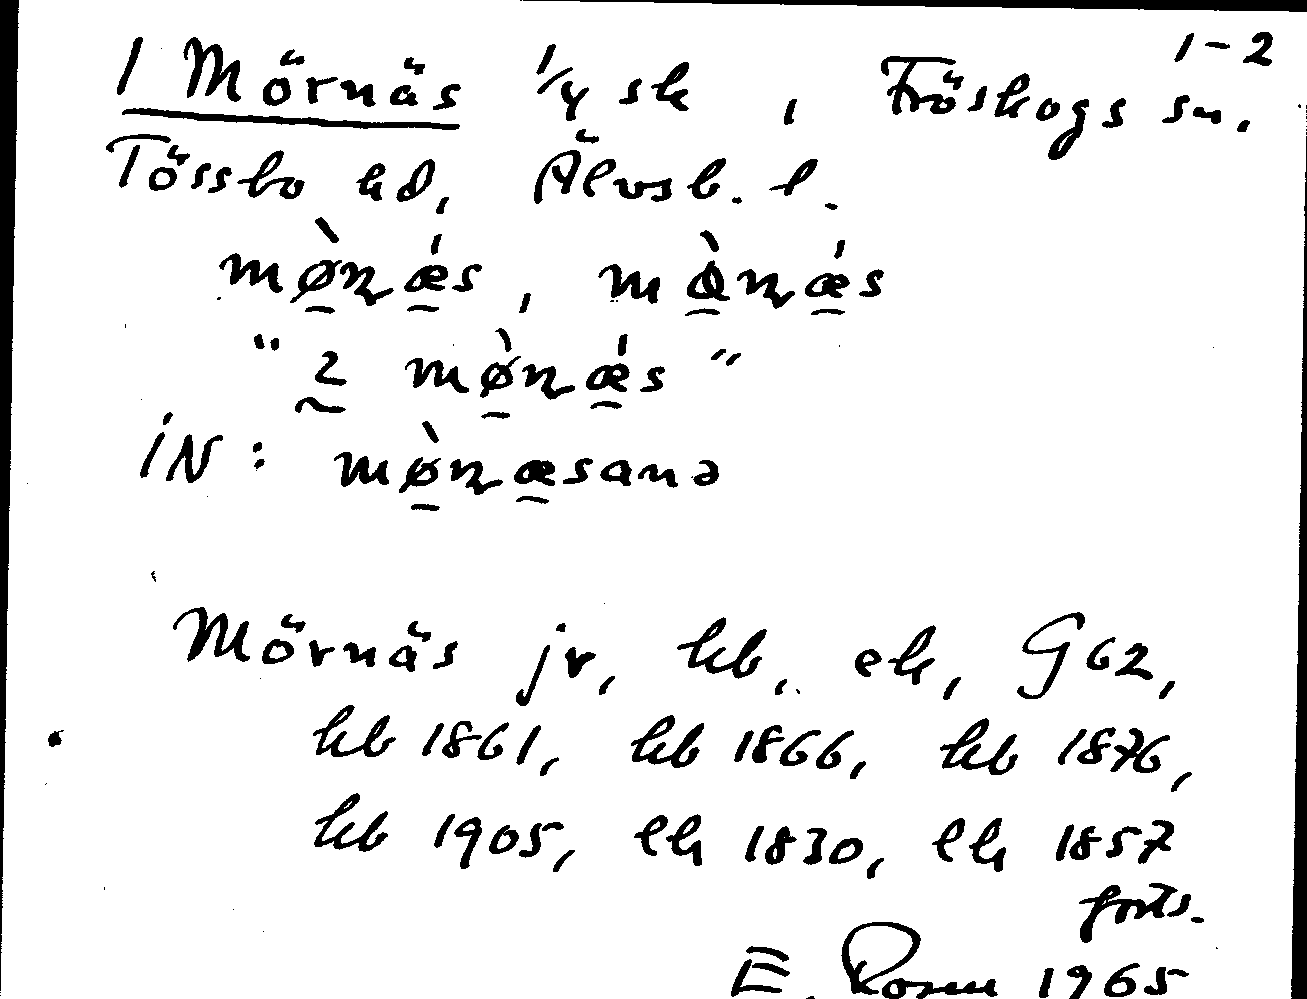 1-2
1 Mörnäs 1/4 sk, Fröskogs sn.
Tössbo hd, Älvsb. l.
mø̀ɳǽs, mò̀ɳǽs
"2 mø̀ɳǽs"
iN: mø̀ɳæsanə
Mörnäs jr, kb, ek, G62,
kb 1861, kb 1866, kb 1876,
kb 1905, lh 1830, lh 1857
forts.
E. Rosm 1965